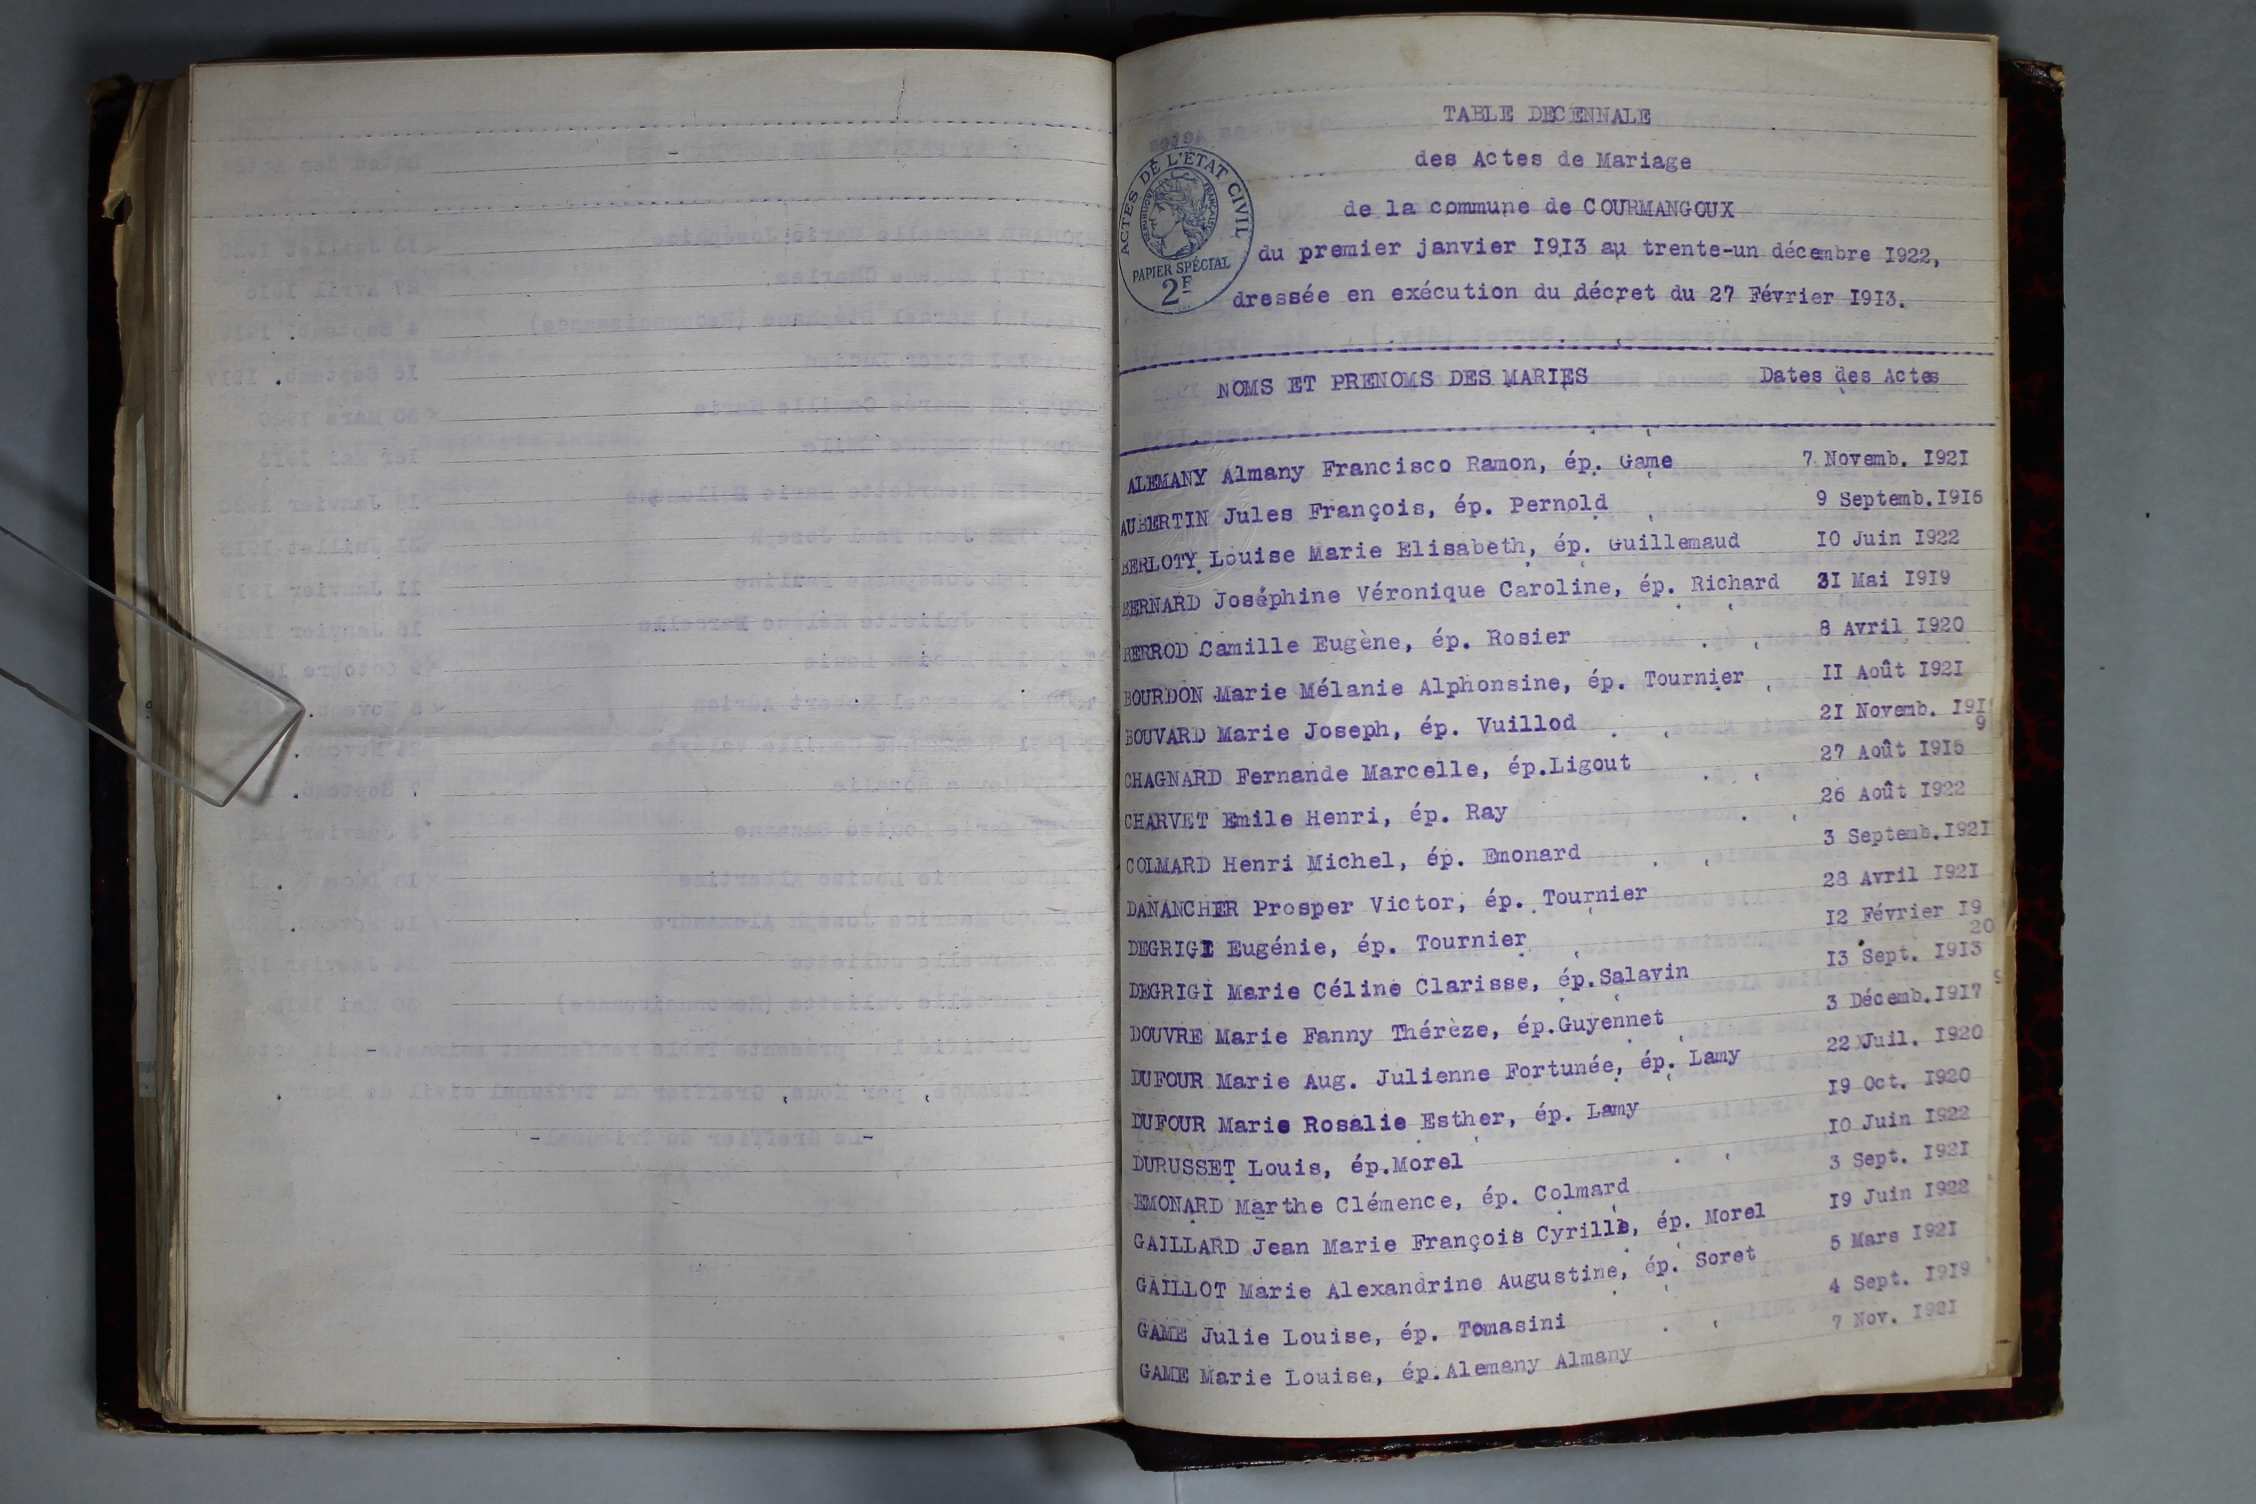 TABLE DECENNALE
des Actes de Mariage
de la commune de COURMANGOUX
du premier janvier 1913 au trente-un décembre 1922,
dressée en exécution du décret du 27 Février 1913.
ACTES DE L'ÉTAT CIVIL
RÉPUBLIQUE FRANÇAISE
PAPIER SPÉCIAL
2F
NOMS ET PRENOMS DES MARIES Dates des Actes
ALEMANY Almany Francisco Ramon, ép. Game 7 Novemb. 1921
AUBERTIN Jules François, ép. Pernold 9 Septemb. 1916
BERLOTY Louise Marie Elisabeth, ép. Guillemaud 10 Juin 1922
BERNARD Joséphine Véronique Caroline, ép. Richard 31 Mai 1919
BERROD Camille Eugène, ép. Rosier 8 Avril 1920
BOURDON Marie Mélanie Alphonsine, ép. Tournier 11 Août 1921
BOUVARD Marie Joseph, ép. Vuillod 21 Novemb. 1919
CHAGNARD Fernande Marcelle, ép.Ligout 27 Août 1915
CHARVET Emile Henri, ép. Ray 26 Août 1922
COLMARD Henri Michel, ép. Emonard 3 Septemb. 1921
DANANCHER Prosper Victor, ép. Tournier 28 Avril 1921
DEGRIGI Eugénie, ép. Tournier 12 Février 1920
DEGRIGI Marie Céline Clarisse, ép.Salavin 13 Sept. 1913
DOUVRE Marie Fanny Thérèze, ép.Guyennet 3 Décemb. 1917
DUFOUR Marie Aug. Julienne Fortunée, ép. Lamy 22 Juil. 1920
DUFOUR Marie Rosalie Esther, ép. Lamy 19 Oct. 1920
DURUSSET Louis, ép.Morel 10 Juin 1922
EMONARD Marthe Clémence, ép. Colmard 3 Sept. 1921
GAILLARD Jean Marie François Cyrille, ép. Morel 19 Juin 1922
GAILLOT Marie Alexandrine Augustine, ép. Soret 5 Mars 1921
GAME Julie Louise, ép. Tomasini 4 Sept. 1919
GAME Marie Louise, ép.Alemany Almany 7 Nov. 1921